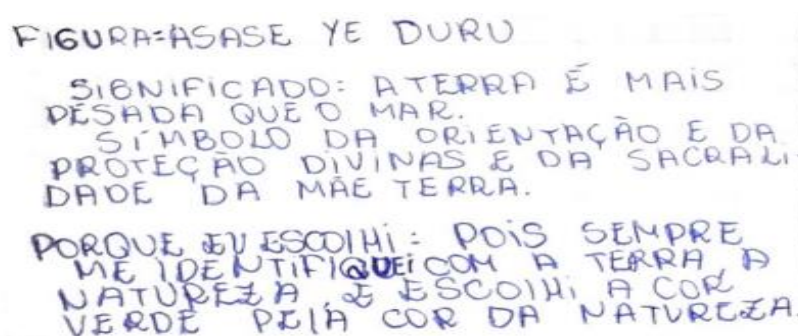 FIGURA=ASASE YE DURU
SIGNIFICADO: A TERRA É MAIS
PESADA QUE O MAR.
SÍMBOLO DA ORIENTAÇÃO E DA
PROTEÇÃO DIVINAS E DA SACRALI-
DADE DA MÃE TERRA.
PORQUE EU ESCOLHI: POIS SEMPRE
ME IDENTIFIQUEI COM A TERRA, A
NATUREZA E ESCOLHI A COR
VERDE PELA COR DA NATUREZA.